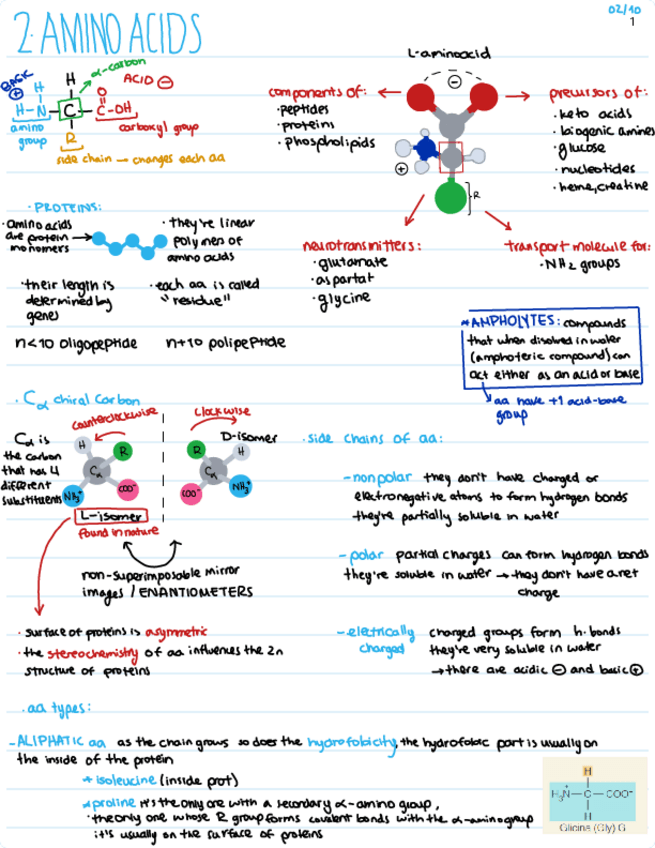 02/10
1
2. AMINO ACIDS
BASIC
⊕
H
α-carbon
ACID ⊖
H
O
H-N-C-C-OH
amino
group
R
carboxyl group
side chain → changes each aa
L-aminoacid
⊖
⊕
R
components of:
·peptides
·proteins
·phospholipids
precursors of:
·keto acids
·biogenic amines
·glucose
·nucleotides
·heme, creatine
neurotransmitters:
·glutamate
·aspartat
·glycine
transport molecule for:
·NH2 groups
·PROTEINS:
·amino acids
are protein
monomers
·they're linear
polymers of
amino acids
·their length is
determined by
genes
·each aa is called
"residue"
n<10 oligopeptide
n+10 polipeptide
*AMPHOLYTES: compounds
that when disolved in water
(amphoteric compound) can
act either as an acid or base
aa have +1 acid-base
group
·Cα chiral carbon
Cα is
the carbon
that has 4
different
substituents
counterclockwise
H
R
Cα
NH3+
COO-
L-isomer
found in nature
clockwise
D-isomer
R
H
Cα
COO-
NH3+
non-superimposable mirror
images / ENANTIOMETERS
·surface of proteins is asymmetric
·the stereochemistry of aa influences the 2n
structure of proteins
·side chains of aa:
-nonpolar they don't have charged or
electronegative atoms to form hydrogen bonds
they're partially soluble in water
-polar partial charges can form hydrogen bonds
they're soluble in water → they don't have a net
charge
-electrically charged groups form h. bonds
charged they're very soluble in water
→there are acidic ⊖ and basic ⊕
·aa types:
-ALIPHATIC aa as the chain grows so does the hydrofobicity, the hydrofobic part is usually on
the inside of the protein
+isoleucine (inside prot)
*proline it's the only one with a secondary α-amino group,
·the only one whose R group forms covalent bonds with the α-amino group
it's usually on the surface of proteins
H
H3N-C-COO-
H
Glicina (Gly) G